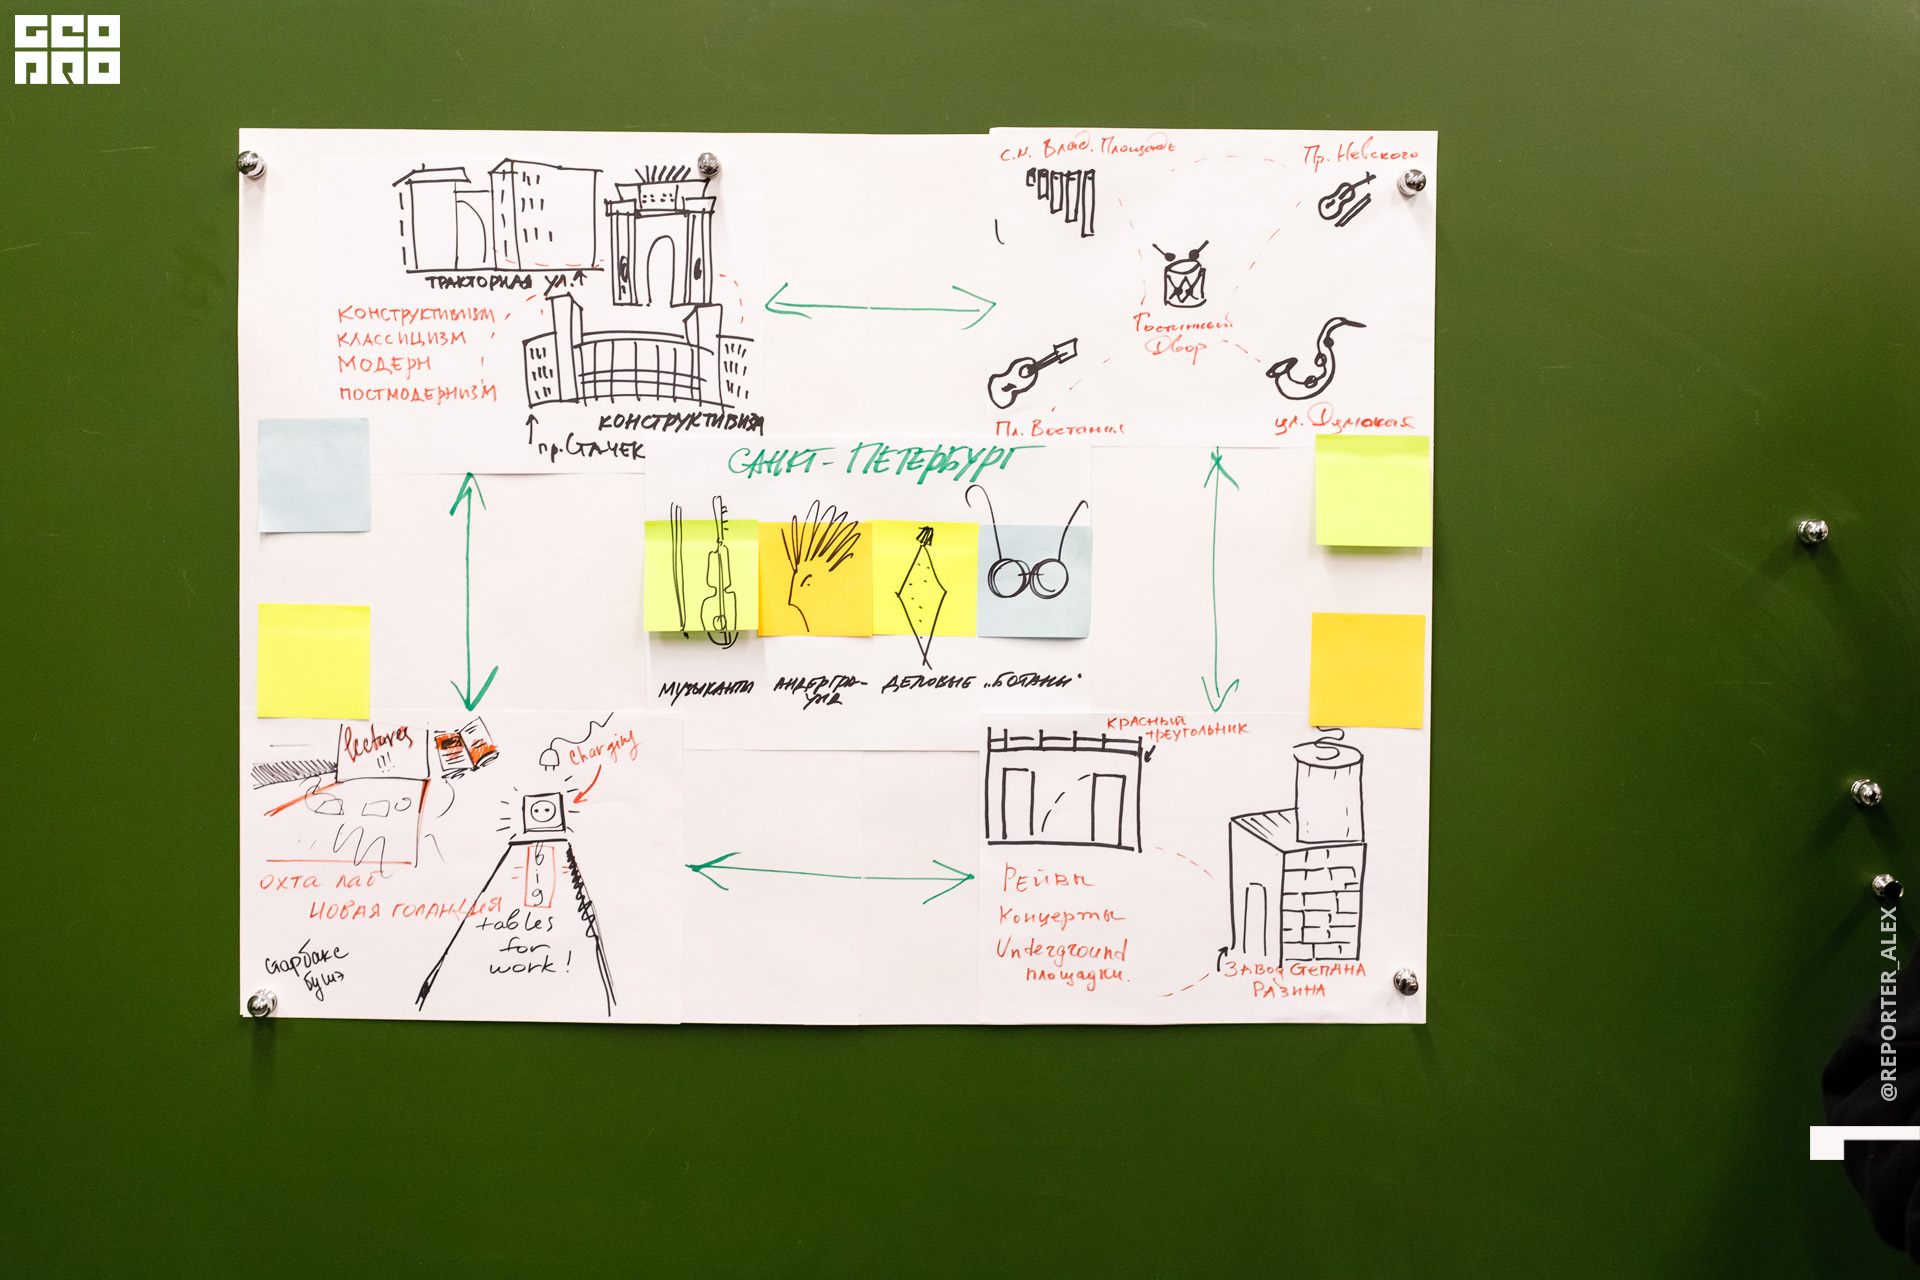 GEO
PRO
ТРАКТОРНАЯ УЛ.
КОНСТРУКТИВИЗМ
КЛАССИЦИЗМ
МОДЕРН
ПОСТМОДЕРНИЗМ
КОНСТРУКТИВИЗМ
пр. СТАЧЕК
с.м. Влад. Площадь
Пр. Невского
Гостинный
Двор
Пл. Востания
ул. Думская
САНКТ-ПЕТЕРБУРГ
МУЗЫКАНТЫ
АНДЕРГРА-
УНД
ДЕЛОВЫЕ
„БОТАНЫ"
lectures
!!!
Charging
big
tables
for
work!
ОХТА ЛАБ
НОВАЯ ГОЛАНДИЯ
Старбакс
Бушэ
КРАСНЫЙ
ТРЕУГОЛЬНИК
Рейвы
Концерты
Underground
площадки.
ЗАВОД СТЕПАНА
РАЗИНА
@REPORTER_ALEX